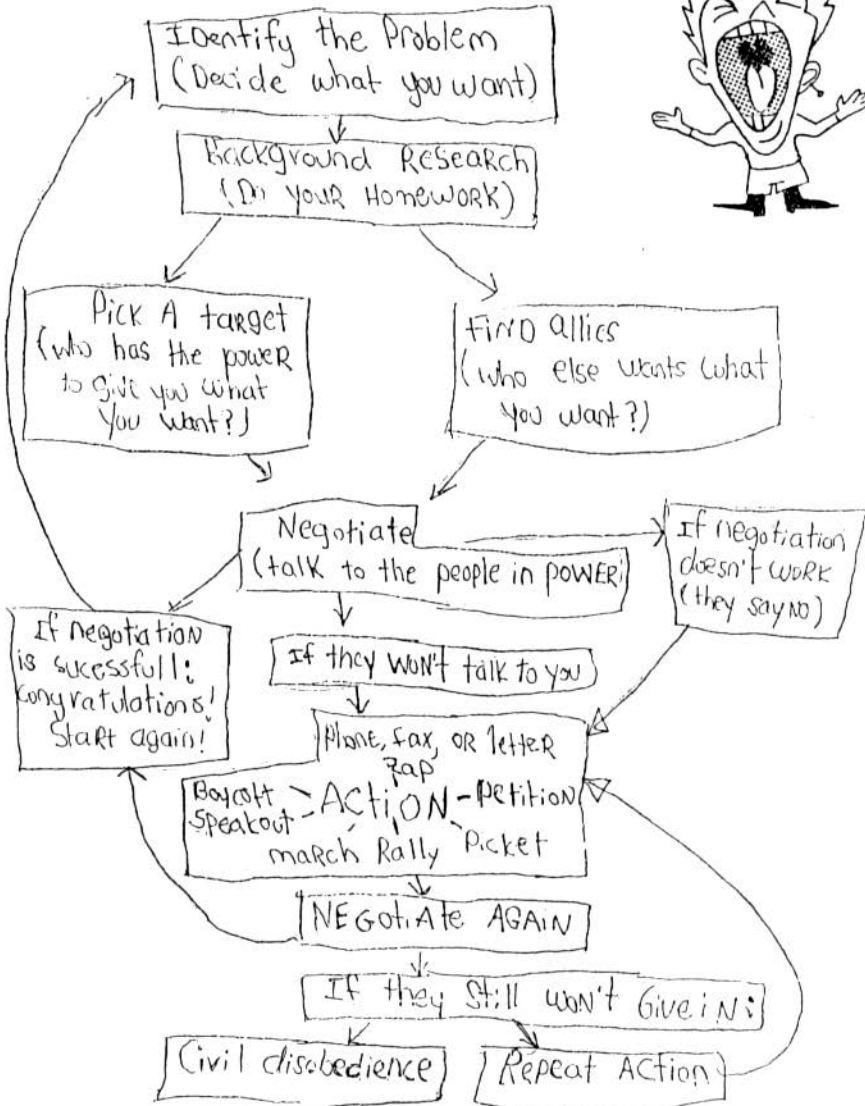 Identify the Problem
(Decide what you want)
Background Research
(Do your Homework)
Pick A target
(who has the power
to give you what
you want?)
Find allies
(who else wants what
you want?)
Negotiate
(talk to the people in power)
If negotiation
doesn't work
(they say no)
If negotiation
is sucessfull:
Congratulations!
Start again!
If they won't talk to you
Phone, fax, or letter
zap
Boycott
ACTION
Petition
Speakout
march
Rally
Picket
Negotiate Again
If they still won't Give in:
Civil disobedience
Repeat Action